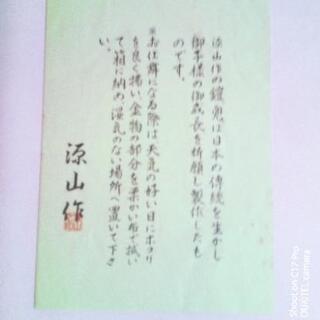 源山作の鎧兜は日本の伝統を生かし
御子様の御成長を祈願し製作したも
のです。
※お仕舞になる際は天気の好い日にホコリ
を良く掃い、金物の部分を柔かい布で拭い
て箱に納め、湿気のない場所へ置いて下さ
い。
源山作
Shoot on C17 Pro
OUKITEL camera